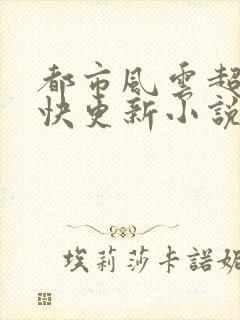 都市風雲超
快更新小說
埃莉莎卡諾妮